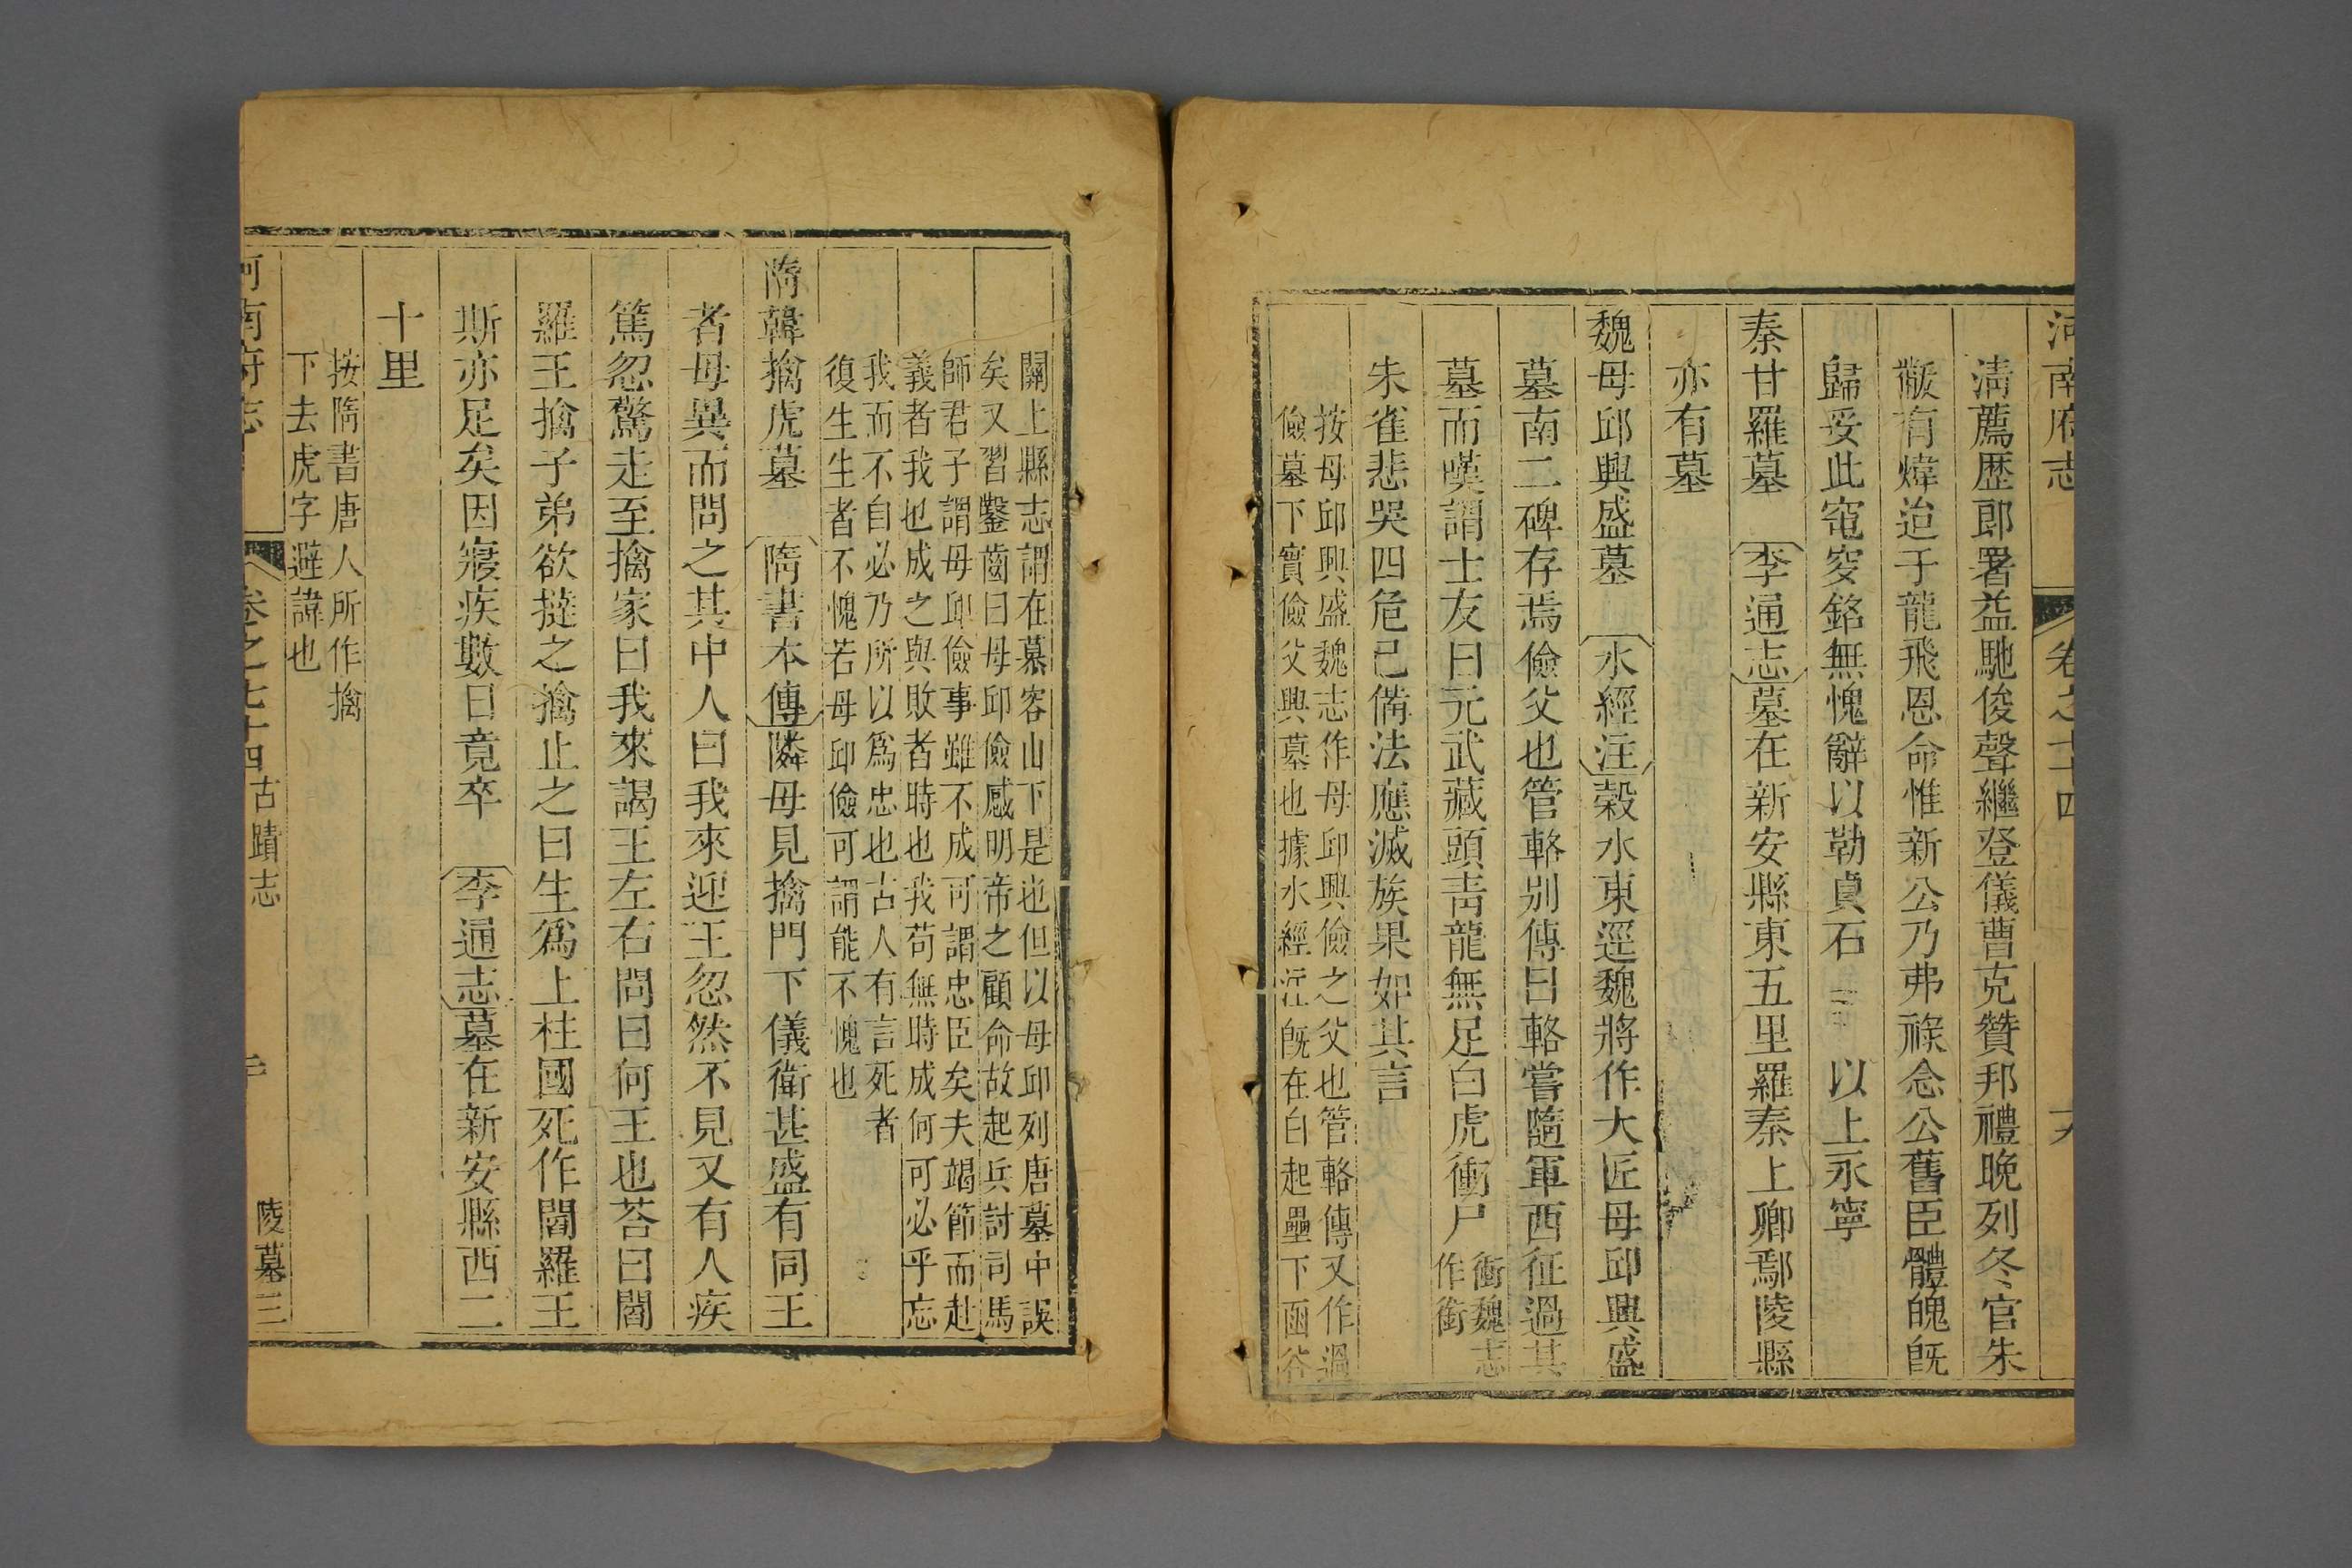 河南府志 卷之七十四
清薦歴郎署益馳俊聲繼登儀曹克贊邦禮晚列冬官朱
黻有煒迨于龍飛恩命惟新公乃弗祿念公舊臣體魄旣
歸妥此窀穸銘無愧辭以勒貞石 以上永寧
秦甘羅墓 李通志墓在新安縣東五里羅秦上卿鄢陵縣
亦有墓
魏毋邱興盛墓 水經注榖水東逕魏將作大匠毋邱興盛
墓南二碑存焉儉父也管輅别傳曰輅嘗隨軍西征過其
墓而嘆謂士友曰元武藏頭青龍無足白虎衝尸衝魏志
作銜
朱雀悲哭四危已備法應滅族果如其言
按毋邱興盛魏志作毋邱興儉之父也管輅傳又作過
儉墓下實儉父興墓也據水經注旣在白起壘下函谷
關上縣志謂在慕容山下是也但以毋邱列唐墓中誤
矣又習鑿齒曰毋邱儉感明帝之顧命故起兵討司馬
師君子謂毋邱儉事雖不成可謂忠臣矣夫竭節而赴
義者我也成之與敗者時也我苟無時成何可必乎忘
我而不自必乃所以爲忠也古人有言死者
復生生者不愧若毋邱儉可謂能不愧也
隋韓擒虎墓 隋書本傳隣母見擒門下儀衛甚盛有同王
者母異而問之其中人曰我來迎王忽然不見又有人疾
篤忽驚走至擒家曰我來謁王左右問曰何王也荅曰閻
羅王擒子弟欲撻之擒止之曰生爲上柱國死作閻羅王
斯亦足矣因寢疾數日竟卒 李通志墓在新安縣西二
十里
按隋書唐人所作擒
下去虎字避諱也
河南府志 卷之七十四 古蹟志 陵墓三